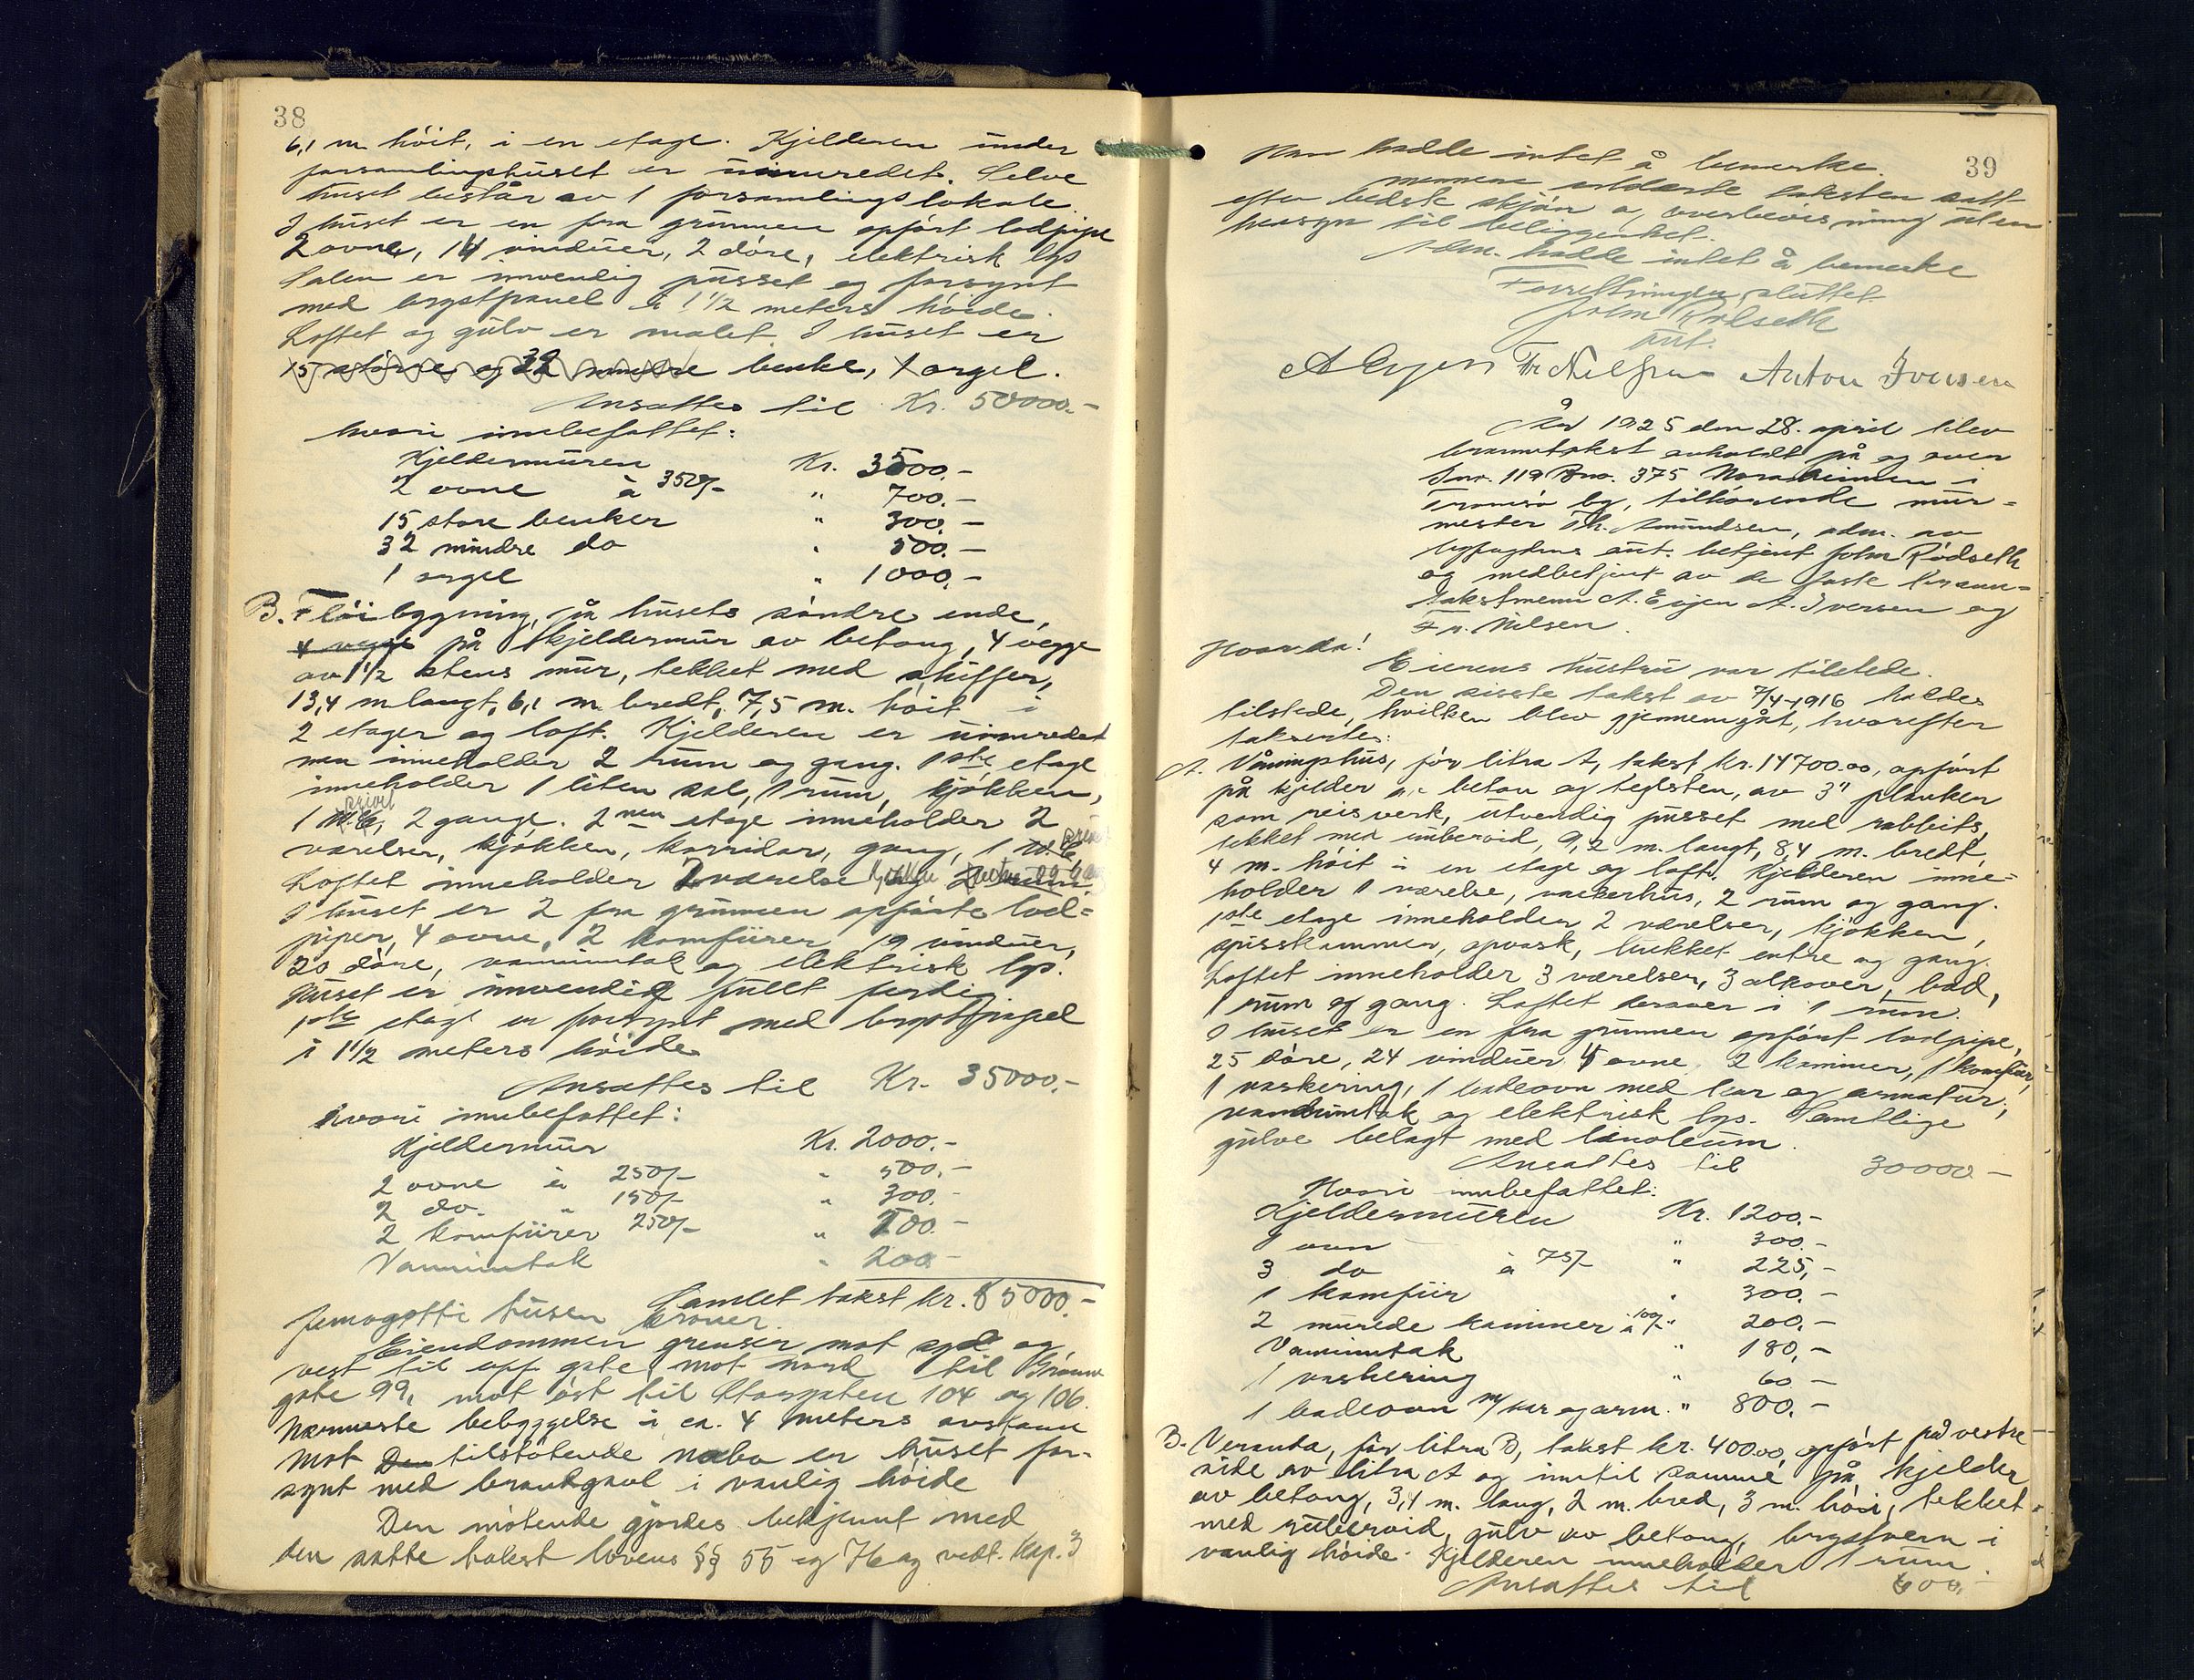 38
6,1 m høit, i en etage. Kjelderen under
forsamlingshuset er uinnredet. Selve
huset består av 1 forsamlingslokale.
I huset er en fra grunnen opført lodpipe
2 ovne, 14 vinduer, 2 døre, elektrisk lys
Salen er innvendig pusset og forsynt
med brystpanel i 1 1/2 meters høide.
Loftet og gulv er malet. I huset er
15 større og 32 mindre benke, 1 orgel.
Ansattes til Kr. 50000.-
hvori innbefattet:
Kjeldermuren Kr. 3500.-
2 ovne à 350/- " 700.-
15 store benker " 300.-
32 mindre do " 500.-
1 orgel " 1000.-
B. Fløibygning, på husets søndre ende,
4 vegge på kjeldermur av betong, 4 vegge
av 1 1/2 stens mur, tekket med skiffer,
13,4 m langt, 6,1 m. bredt, 7,5 m. høit i
2 etager og loft. Kjelderen er uinnredet
men inneholder 2 rum og gang. 1ste etage
inneholder 1 liten sal, 1 rum, kjøkken,
1 W.C, 2 gange. 2nen etage inneholder 2
værelser, kjøkken, korridor, gang, 1 W.C
Loftet inneholder 2 værelse
I huset er 2 fra grunnen opførte lod=
piper, 4 ovne, 2 komfürer, 19 vinduer,
20 døre, vanninntak og elektrisk lys.
Huset er innvendig fullt ferdig
1ste etage er forsynt med brystpanel
i 1 1/2 meters høide
Ansattes til Kr. 35000.-
hvori innbefattet:
Kjeldermur Kr. 2000.-
2 ovne à 250/- " 500.-
2 do. " 150/- " 300.-
2 komfürer 250/- " 500.-
Vanninntak " 200.-
Samlet takst kr. 85000.-
femogotti tusen kroner.
Eiendommen grenser mot syd og
vest til opf. gate, mot nord til Grønne
gate 99, mot øst til Storgaten 104 og 106.
Nærmeste bebyggelse i ca. 4 meters avstann
Mot Den tilstøtende nabo er huset for-
synt med brandgavl i vanlig høide
Den møtende gjordes bekjennt med
den satte takst lovens §§ 55 og 76 og vedt. Kap. 3
39
Han hadde intet å bemerke.
Mennene erklærte taksten satt
efter bedste skjøn og overbevisning uten
hensyn til beliggenhet.
Adm. hadde intet å bemerke
Forretningen sluttet
John Rødseth
aut.
A Evjen Fr Nilsen Anton Iversen
År 1925 den 28. april blev
branntakst avholdt på og over
Gnr. 119 Bnr. 375 Noraheimen i
Tromsø by, tilhørende mur=
mester Th. Amundsen, adm. av
byfogdens aut. betjent John Rødseth
og medbetjent av de faste brann=
takstmenn A. Evjen A. Iversen og
Fr. Nilsen.
Hvorda!
Eierens hustru var tilstede.
Den sisste takst av 7/4-1916 hadde
tilstede, hvilken blev gjennemgått, hvorefter
takseres:
A. Våningshus, før litra A, takst Kr. 14700.00, opført
på kjelder av beton og teglsten, av 3" planker
som reisverk, utvendig pusset med rabbits,
tekket med ruberoid, 9,2 m. langt, 8,4 m. bredt,
4 m. høit i en etage og loft. Kjelderen inne=
holder 1 værelse, vaskerhus, 2 rum og gang.
1ste etage inneholder 2 værelser, kjøkken,
spisskammer, opvask, lukket entre og gang.
Loftet inneholder 3 værelser, 3 alkover, bad,
1 rum og gang. Loftet derover i 1 rum.
I huset er en fra grunnen opført lodpipe,
25 døre, 24 vinduer 4 ovne, 2 kaminer, 1 komfür,
1 vaskering, 1 badeovn med kar og armatur,
vanninntak og elektrisk lys. Samtlige
gulve belagt med linoleum.
Ansattes til 30000-
Hvori innbefattet:
Kjeldermuren Kr. 1200.-
1 ovn " 300.-
3 do à 75/- " 225,-
1 komfür " 300.-
2 murede kaminer à 100/- " 200.-
Vanninntak " 180,-
1 vaskering " 60-
1 badeovn m/kar og arm. " 800.-
B. Veranda, før litra B, takst kr. 400.00, opført på vestre
side av litra A og inntil samme på kjelder
av betong, 3,1 m. lang, 2 m. bred, 3 m. høi, tekket
med ruberoid, gulv av betong, brystvern i
vanlig høide. Kjelderen inneholder 1 rum.
Ansattes til 600.-